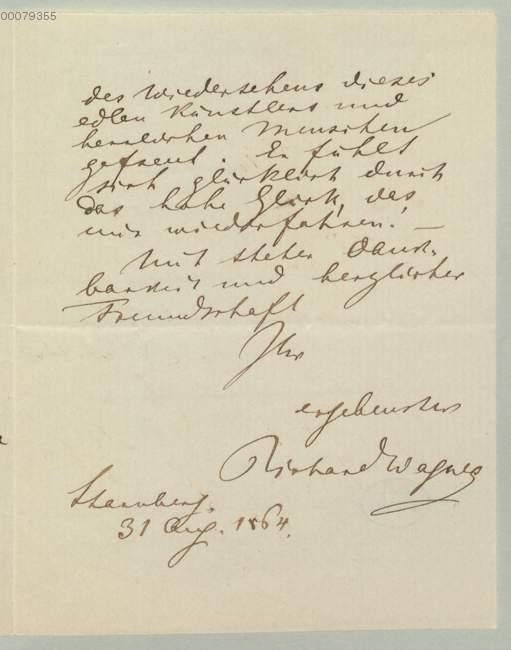 00079355
des Wiedersehens dieses
edlen Künstlers und
herrlichen Menschen
gefreut. Er fühlt
sich glücklich durch
das hohe Glück, das
mir wiederfahren! —
Mit steter Dank-
barkeit und herzlicher
Freundschaft
Ihr
ergebenster
Richard Wagner
Starnberg.
31 Aug. 1864.